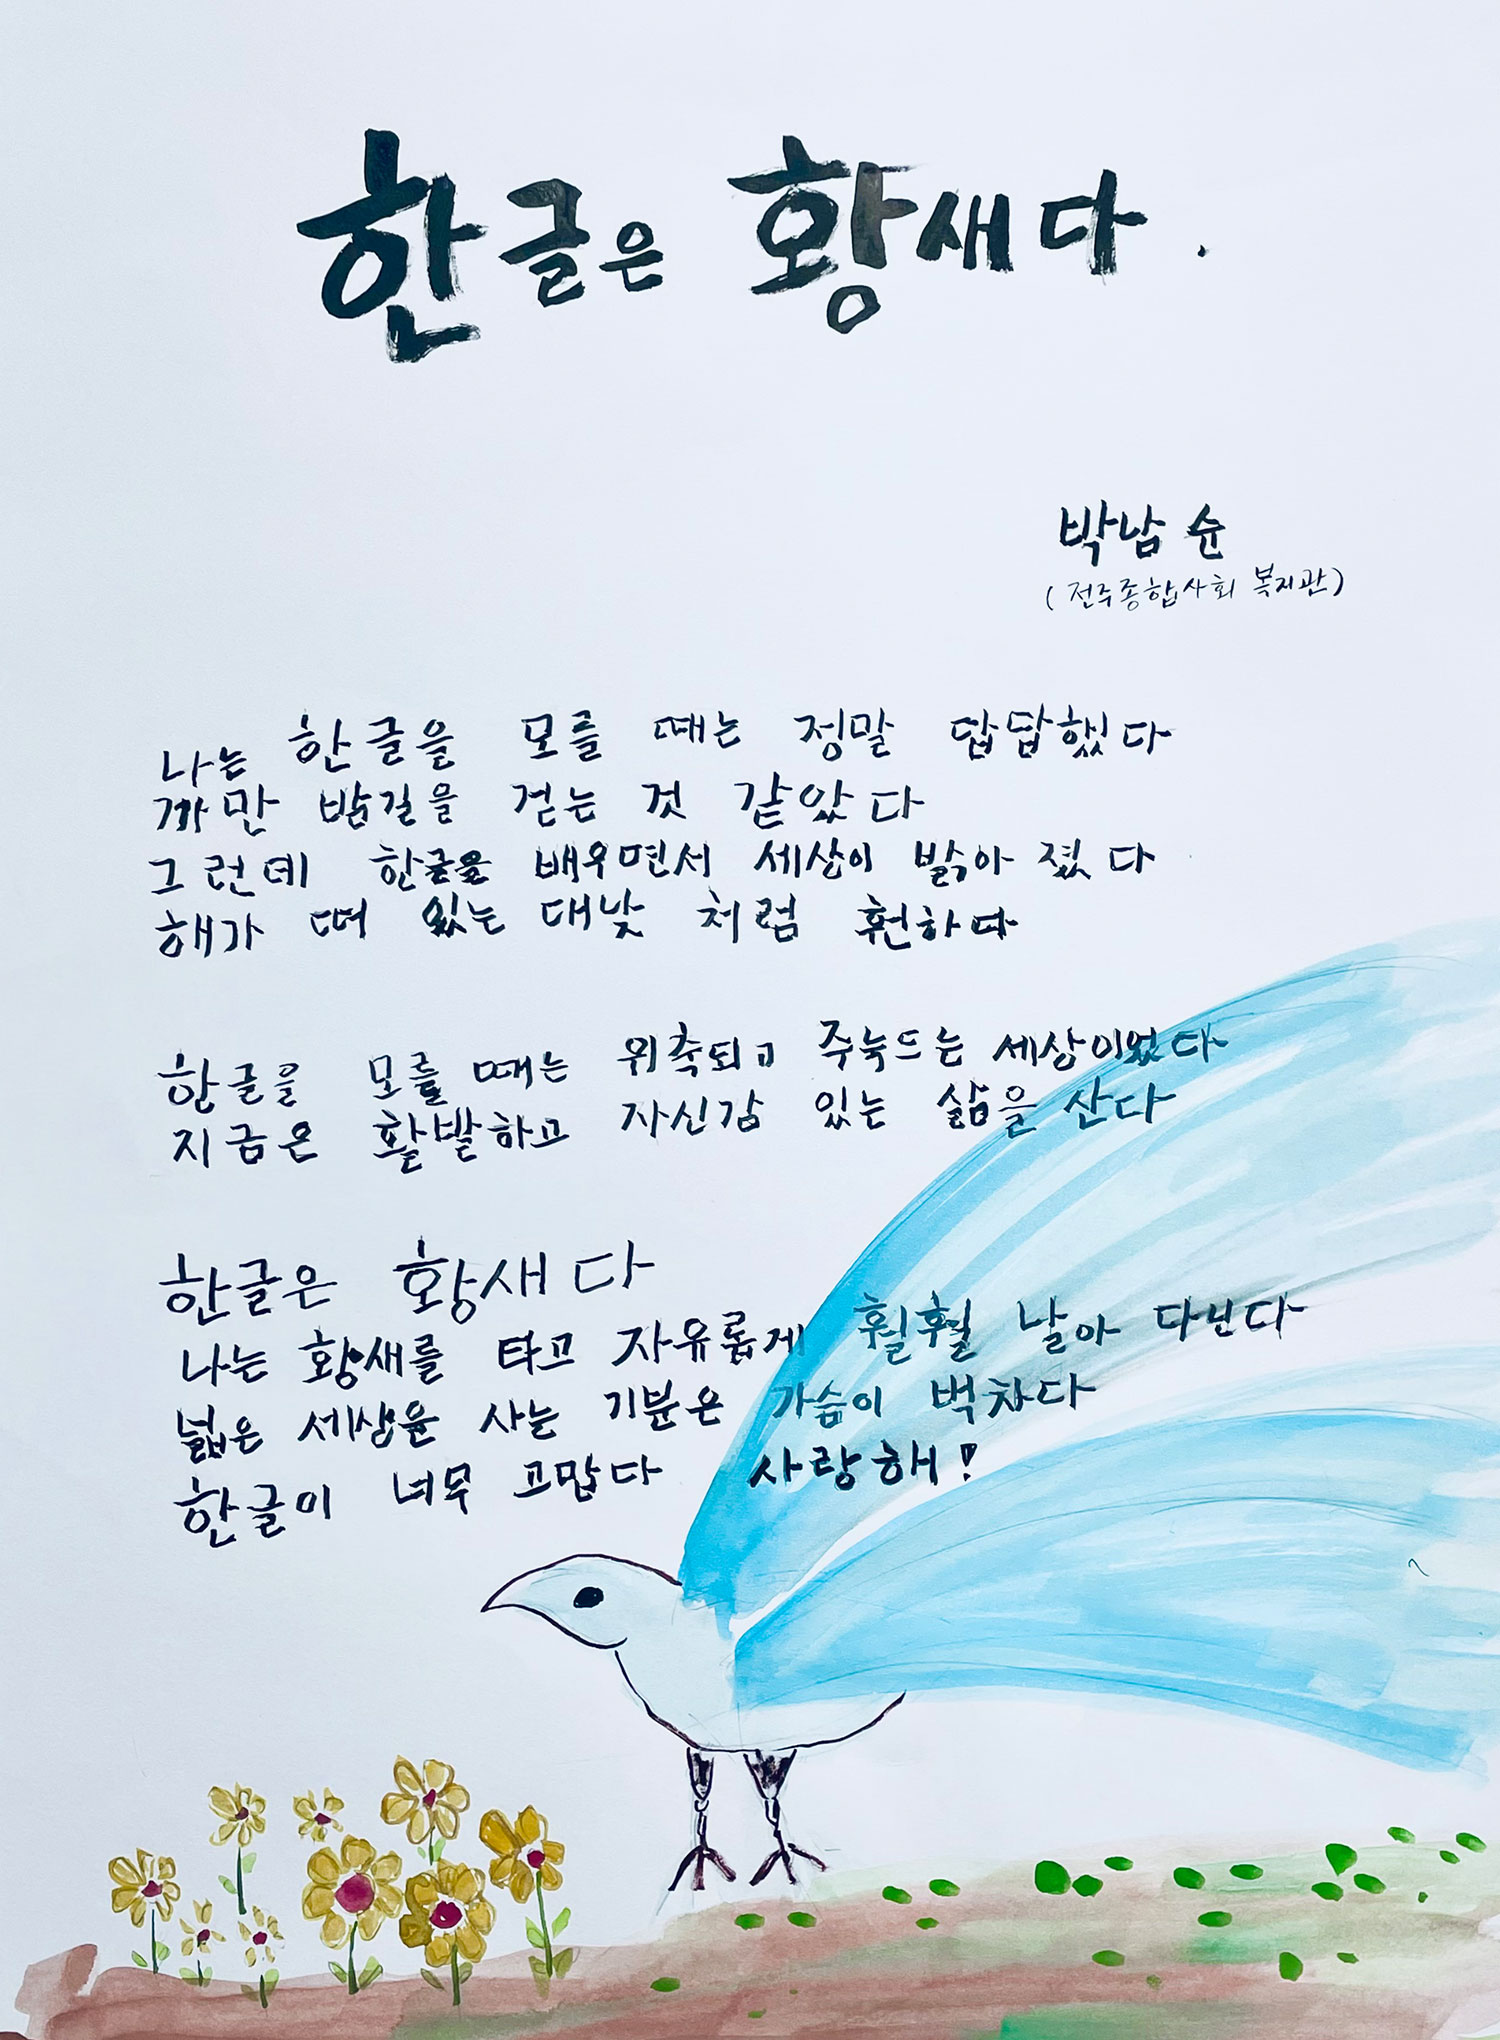 한글은 황새다.
박남순
(전주종합사회복지관)
나는 한글을 모를 때는 정말 답답했다
까만 밤길을 걷는 것 같았다
그런데 한글을 배우면서 세상이 밝아 졌다
해가 떠 있는 대낮 처럼 훤하다
한글을 모를 때는 위축되고 주눅드는 세상이었다
지금은 활발하고 자신감 있는 삶을 산다
한글은 황새다
나는 황새를 타고 자유롭게 훨훨 날아 다닌다
넓은 세상을 사는 기분은 가슴이 벅차다
한글이 너무 고맙다 사랑해!